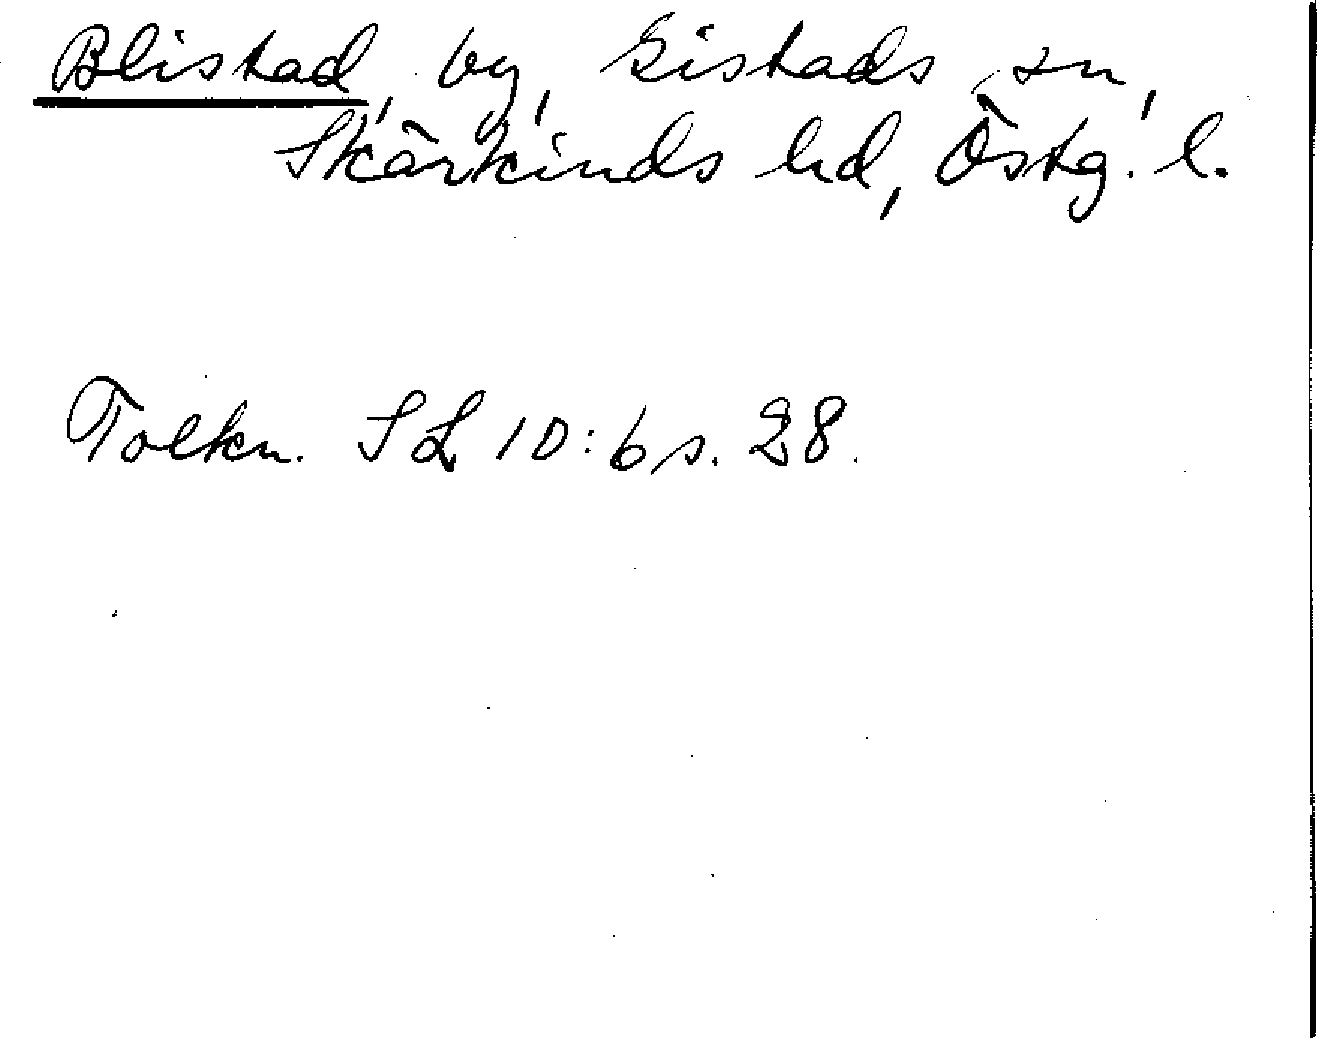 Blistad, by, Gistads sn,
Skärkinds hd, Östg. l.
Tolkn. SL 10:6 s. 28.